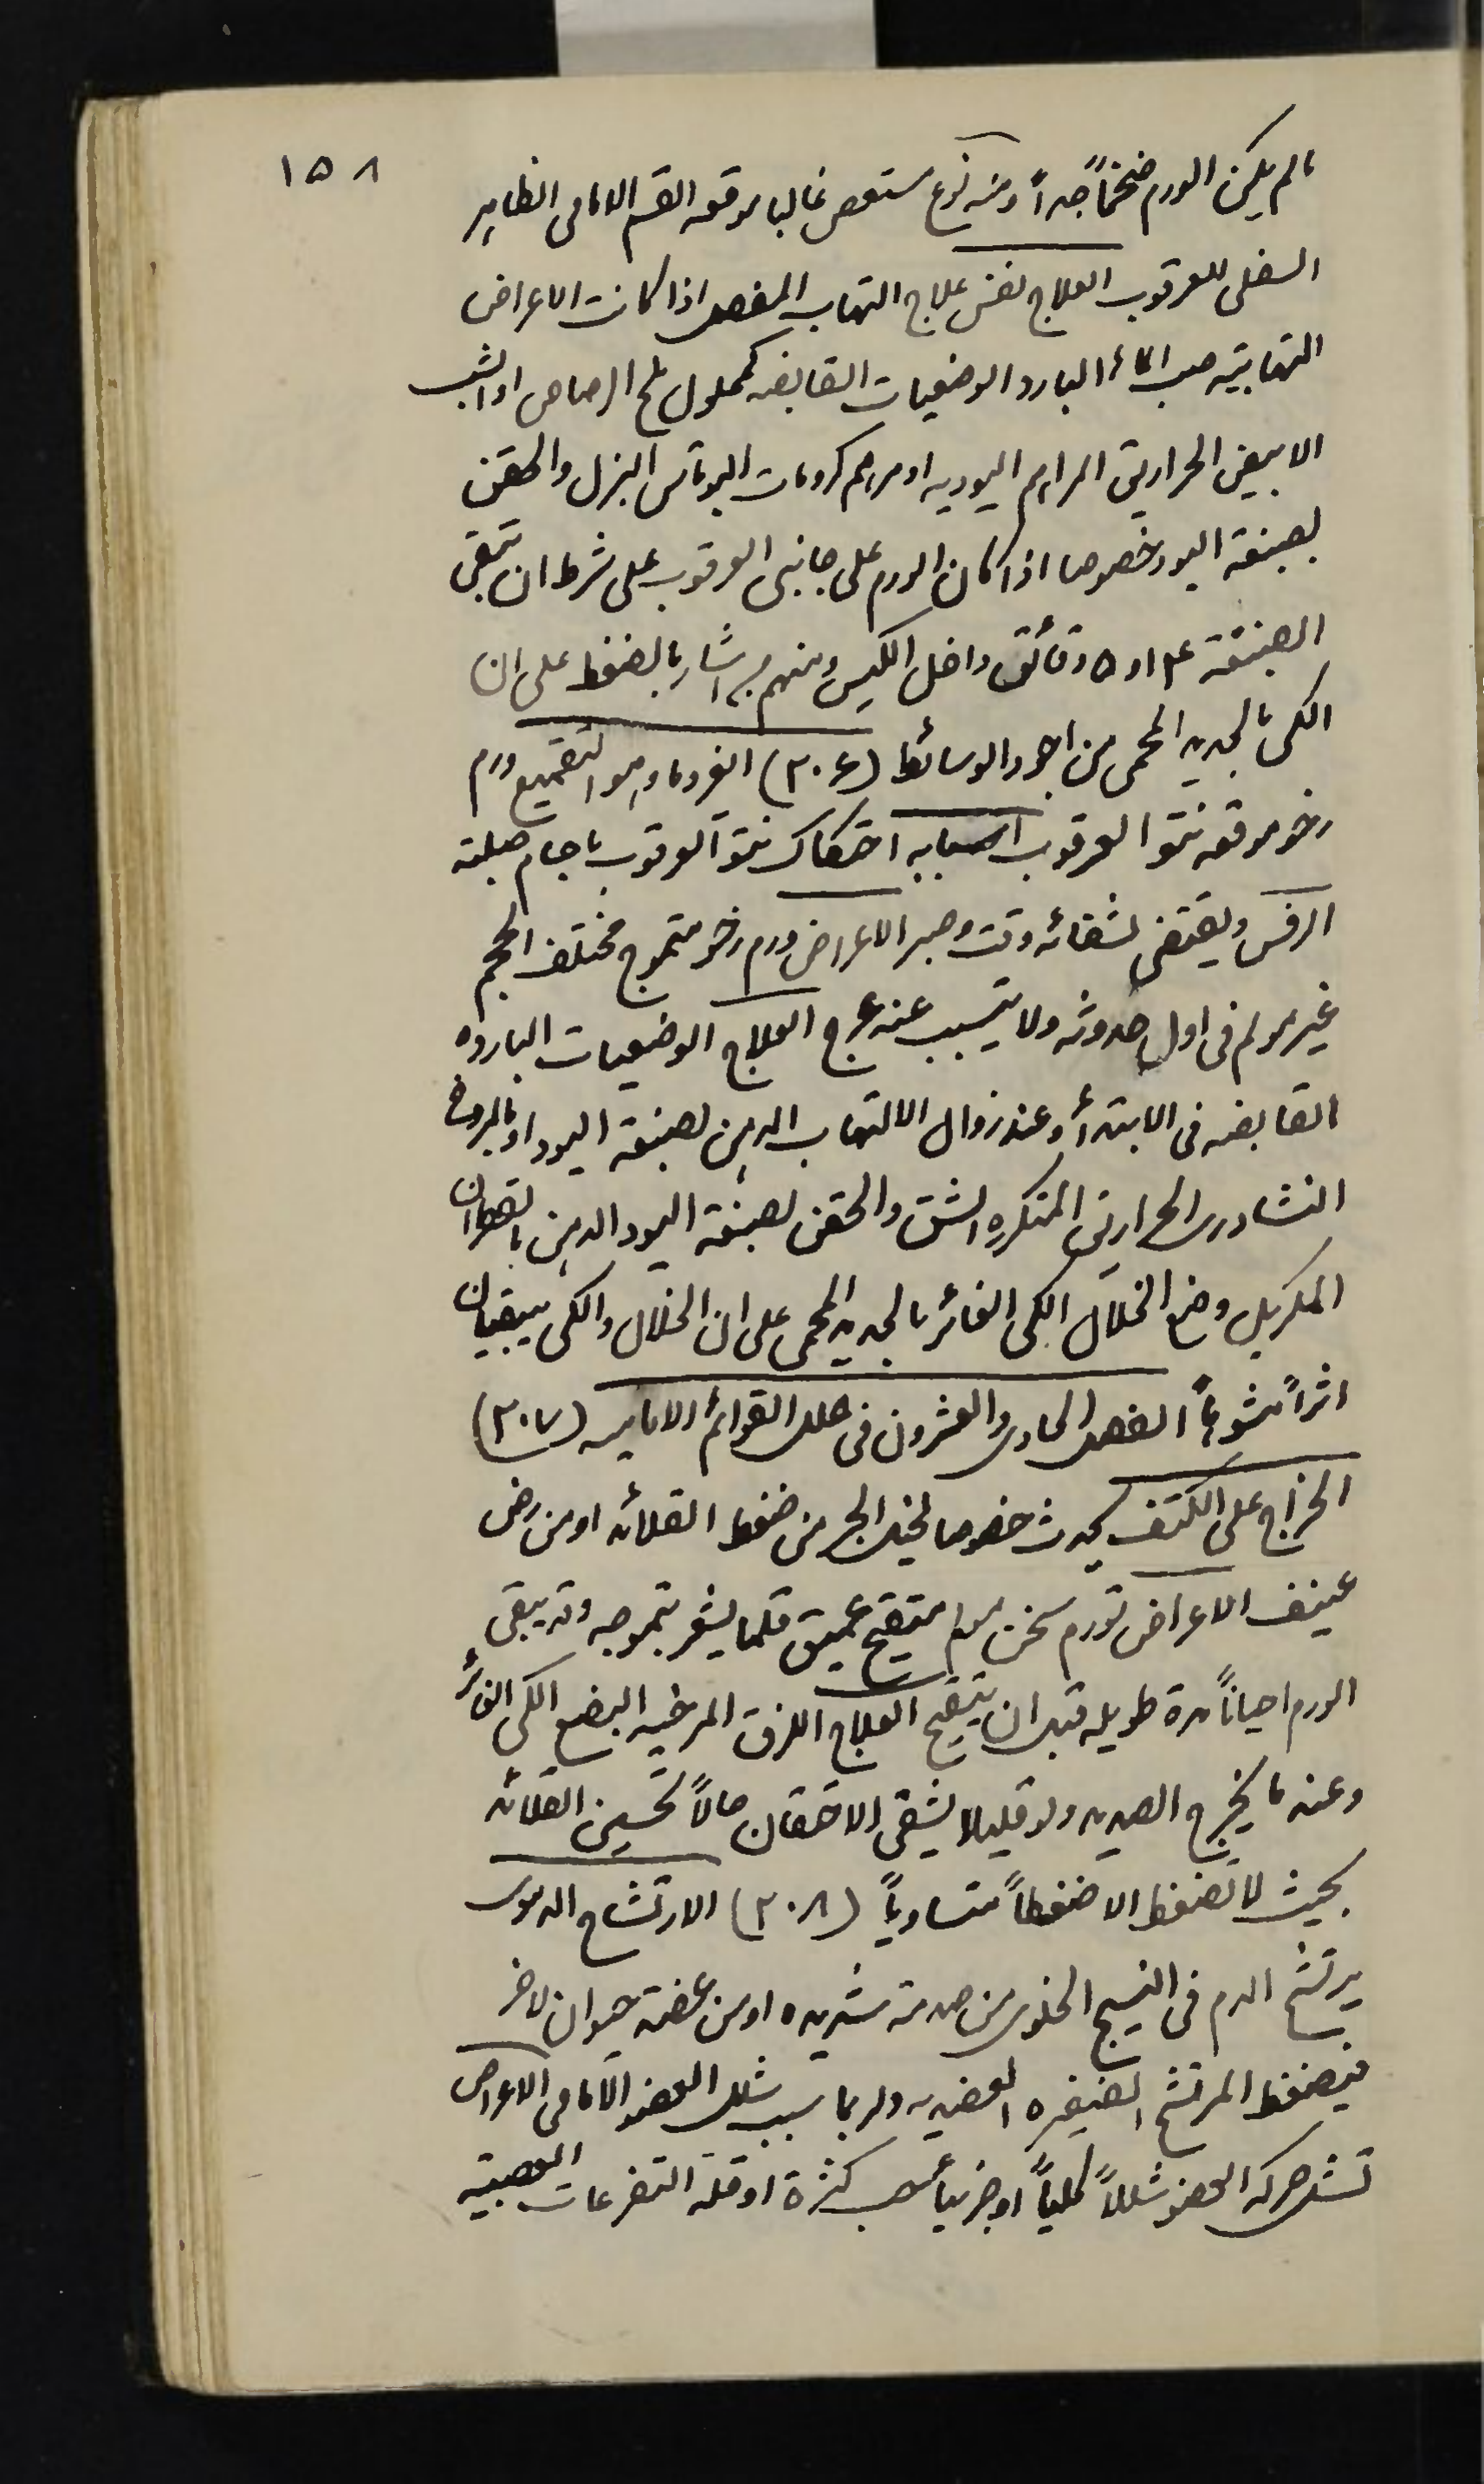 ١٥٨
مالم يكن الورم ضخماً جداً ومنه نوع مستعص غالبا موقعه القسم الامامى الظاهر
السفلى للعرقوب العلاج نفس علاج التهاب المفصل اذا كانت الاعراض
التهابية صب الماء البارد الوضعيات القابضه كمحلول ملح الرصاص او الشب
الابيض الحراريق المراهم اليوديه او مرهم كرومات البوتاس البزل والحقن
بصبغة اليود خصوصا اذا كان الورم على جانبى العرقوب على شرط ان تبقى
الصبغة ٤ او ٥ دقائق داخل الكيس ومنهم من اشار بالضغط على ان
الكى بالحديد المحمى من اجود الوسائط (٣٠٦) القدوما وهو التقميع ورم
رخو موقعه نتؤ العرقوب اسبابه احتكاك نتؤ العرقوب باجسام صلبة
الرفس ويقتضى لشفائه وقت وصبر الاعراض ورم رخو متموج مختلف الحجم
غير مولم فى اول حدوثه ولا يتسبب عنه عرج العلاج الوضعيات الباردة
القابضه فى الابتداء وعند زوال الالتهاب الدهن بصبغة اليود او بالمروخ
النشادرى الحراريق المتكرره الشق والحقن بصبغة اليود الدهن بالقطران
المكربل وضع الخلال الكى الغائر بالحديد المحمى على ان الخلال والكى يبقيان
اثراً مشوهاً الفصل الحادى والعشرون فى علل القوائم الاماميه (٣٠٧)
الخراج على الكتف يحدث خصوصا لخيل الجر من ضغط القلائد او من رض
عنيف الاعراض تورم سخن مولم متقيح عميق قلما يشعر بتموجه وقد يبقى
الورم احياناً مدة طويله قبل ان يتقيح العلاج اللزق المرخيه البضع الكى الغائر
وعند ما يخرج الصديد ولو قليلا يشفى الاحتقان حالاً تحسين القلائد
بحيث لا تضغط الا ضغطاً متساوياً (٣٠٨) الارتشاح الدموى
يرتشح الدم فى النسيج الخلوى من صدمة شديده او من عضة حيوان لاخر
فيضغط المرتشح الضفيره العضديه ولربما سبب شلل العضو الامامى الاعراض
تشل حركة العضو شللاً كلياً او جزئياً بحسب كثرة او قلة التفرعات العصبية